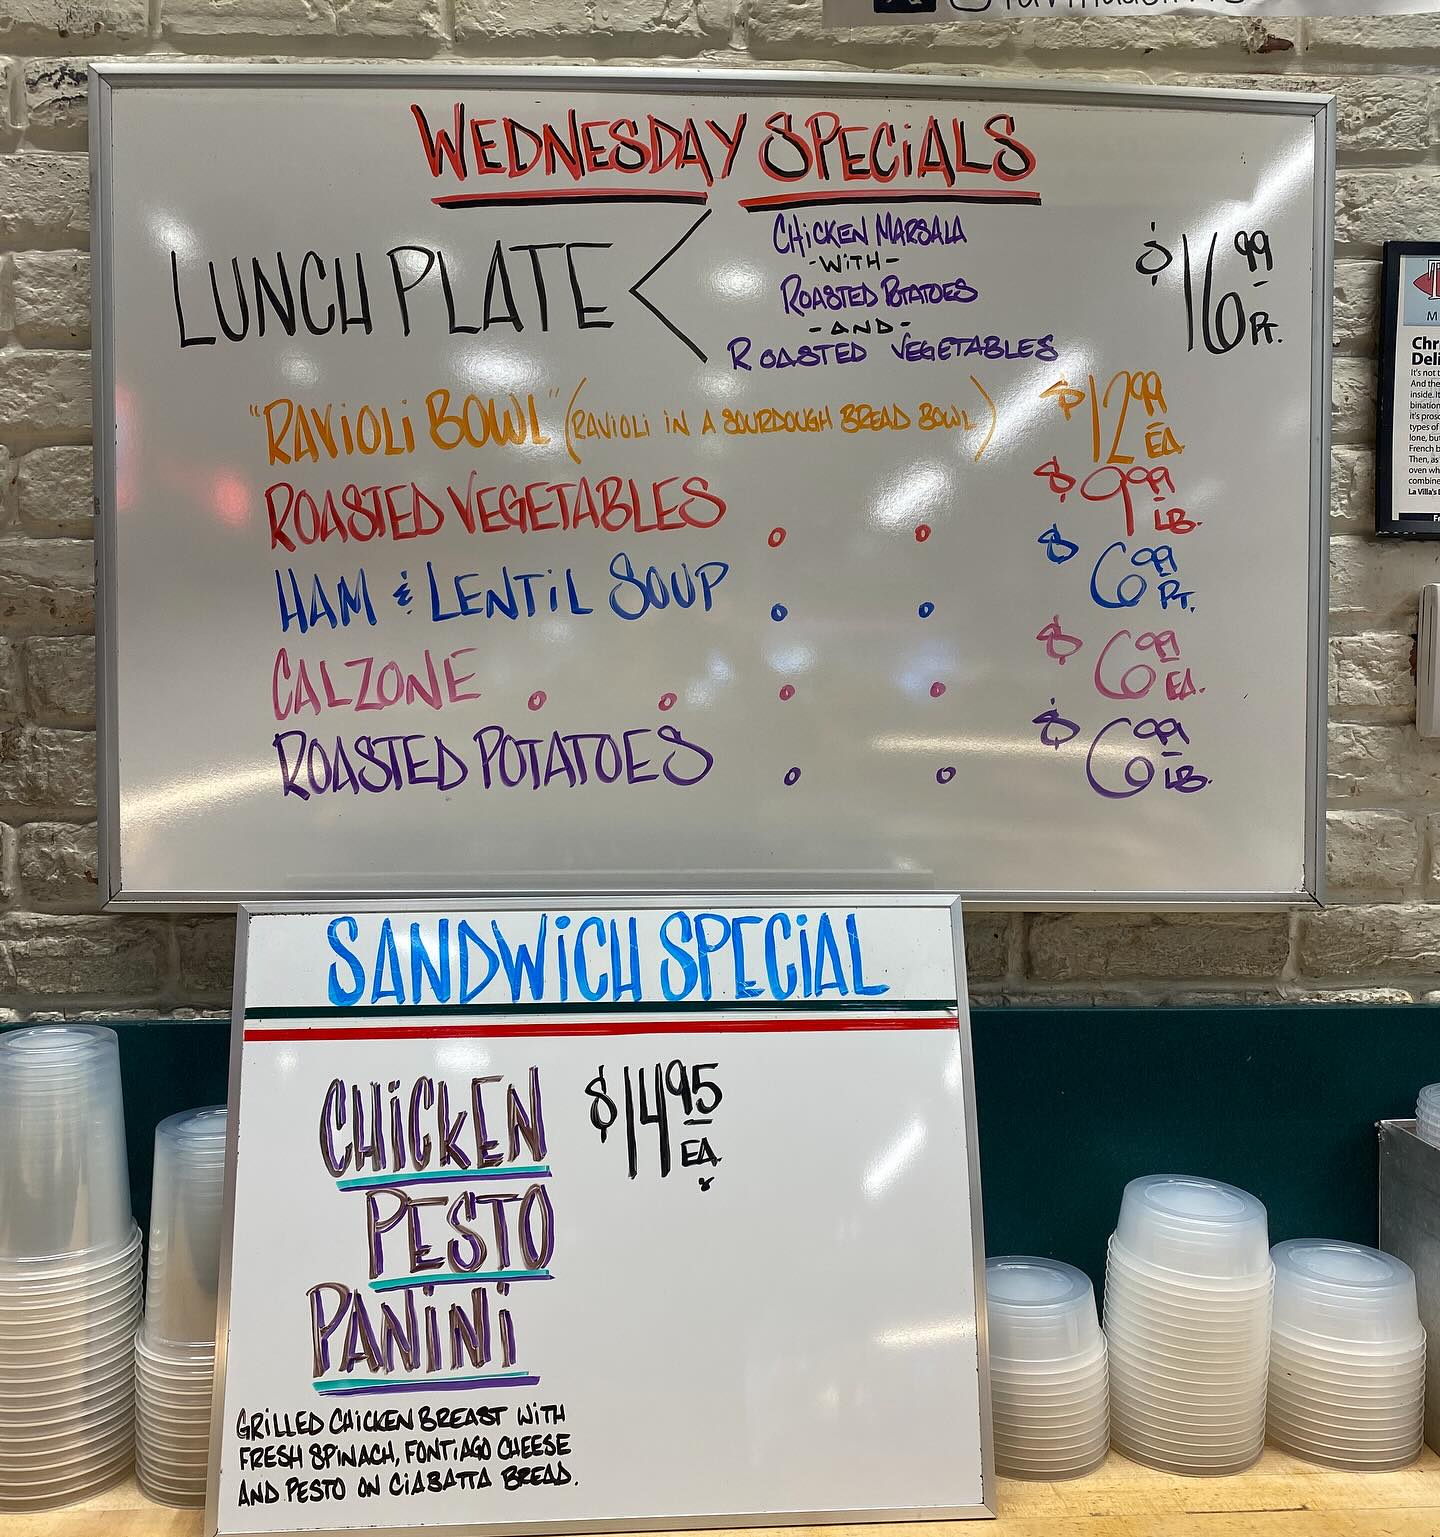 WEDNESDAY SPECiALS
LUNCH PLATE
CHiCKEN MARSALA
-WiTH-
ROASTED POTATOES
-AND-
ROASTED VEGETABLES
$16.99 PT.
"RAViOLi BOWL" (RAVIOLI IN A SOURDOUGH BREAD BOWL) $12.99 EA
ROASTED VEGETABLES $9.99 LB.
HAM & LENTiL SOUP $6.99 PT.
CALZONE $6.99 EA.
ROASTED POTATOES $6.99 LB.
SANDWiCH SPECiAL
CHiCKEN $14.95 EA.
PESTO
PANiNi
GRiLLED CHiCKEN BREAST WiTH
FRESH SPiNACH, FONTiAGO CHEESE
AND PESTO ON CiABATTA BREAD.
Chr
Deli
It's not t
And the
inside. It
bination
it's prosc
types of
lone, but
French b
Then, as
oven wh
combine
La Villa's